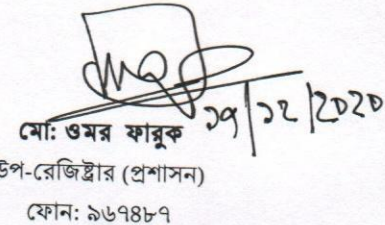 মো: ওমর ফারুক ১৭/১২/2020
উপ-রেজিষ্ট্রার (প্রশাসন)
ফোন: ৯৬৭৪৮৭